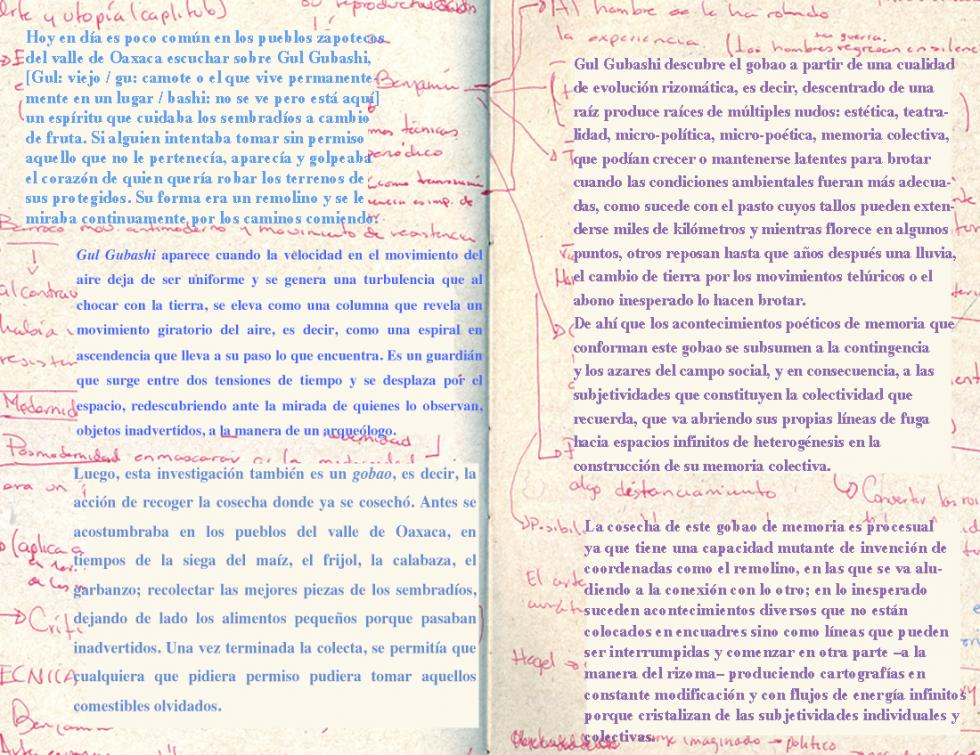 Arte y utopía (capítulo)
Hoy en día es poco común en los pueblos zapotecos
del valle de Oaxaca escuchar sobre Gul Gubashi,
[Gul: viejo / gu: camote o el que vive permanente-
mente en un lugar / bashi: no se ve pero está aquí]
un espíritu que cuidaba los sembradíos a cambio
de fruta. Si alguien intentaba tomar sin permiso
aquello que no le pertenecía, aparecía y golpeaba
el corazón de quien quería robar los terrenos de
sus protegidos. Su forma era un remolino y se le
miraba continuamente por los caminos comiendo.
Benjamin
técnicas
periódico
como
Barroco mov antimoderno y movimiento de resistencia
Gul Gubashi aparece cuando la velocidad en el movimiento del
aire deja de ser uniforme y se genera una turbulencia que al
chocar con la tierra, se eleva como una columna que revela un
movimiento giratorio del aire, es decir, como una espiral en
ascendencia que lleva a su paso lo que encuentra. Es un guardián
que surge entre dos tensiones de tiempo y se desplaza por el
espacio, redescubriendo ante la mirada de quienes lo observan,
objetos inadvertidos, a la manera de un arqueólogo.
había
Posmodernidad
Luego, esta investigación también es un gobao, es decir, la
acción de recoger la cosecha donde ya se cosechó. Antes se
acostumbraba en los pueblos del valle de Oaxaca, en
tiempos de la siega del maíz, el frijol, la calabaza, el
garbanzo; recolectar las mejores piezas de los sembradíos,
dejando de lado los alimentos pequeños porque pasaban
inadvertidos. Una vez terminada la colecta, se permitía que
cualquiera que pidiera permiso pudiera tomar aquellos
comestibles olvidados.
(aplica a
Benjamin
Al hombre se le ha robado
la guerra.
la experiencia (Los hombres regresan en silen
Gul Gubashi descubre el gobao a partir de una cualidad
de evolución rizomática, es decir, descentrado de una
raíz produce raíces de múltiples nudos: estética, teatra-
lidad, micro-política, micro-poética, memoria colectiva,
que podían crecer o mantenerse latentes para brotar
cuando las condiciones ambientales fueran más adecua-
das, como sucede con el pasto cuyos tallos pueden exten-
derse miles de kilómetros y mientras florece en algunos
puntos, otros reposan hasta que años después una lluvia,
el cambio de tierra por los movimientos telúricos o el
abono inesperado lo hacen brotar.
De ahí que los acontecimientos poéticos de memoria que
conforman este gobao se subsumen a la contingencia
y los azares del campo social, y en consecuencia, a las
subjetividades que constituyen la colectividad que
recuerda, que va abriendo sus propias líneas de fuga
hacia espacios infinitos de heterogénesis en la
construcción de su memoria colectiva.
algo distanciamiento
Convertir los
La cosecha de este gobao de memoria es procesual
ya que tiene una capacidad mutante de invención de
coordenadas como el remolino, en las que se va alu-
diendo a la conexión con lo otro; en lo inesperado
suceden acontecimientos diversos que no están
colocados en encuadres sino como líneas que pueden
ser interrumpidas y comenzar en otra parte –a la
manera del rizoma– produciendo cartografías en
constante modificación y con flujos de energía infinitos
porque cristalizan de las subjetividades individuales y
colectivas.
El arte
Hegel
imaginado → político